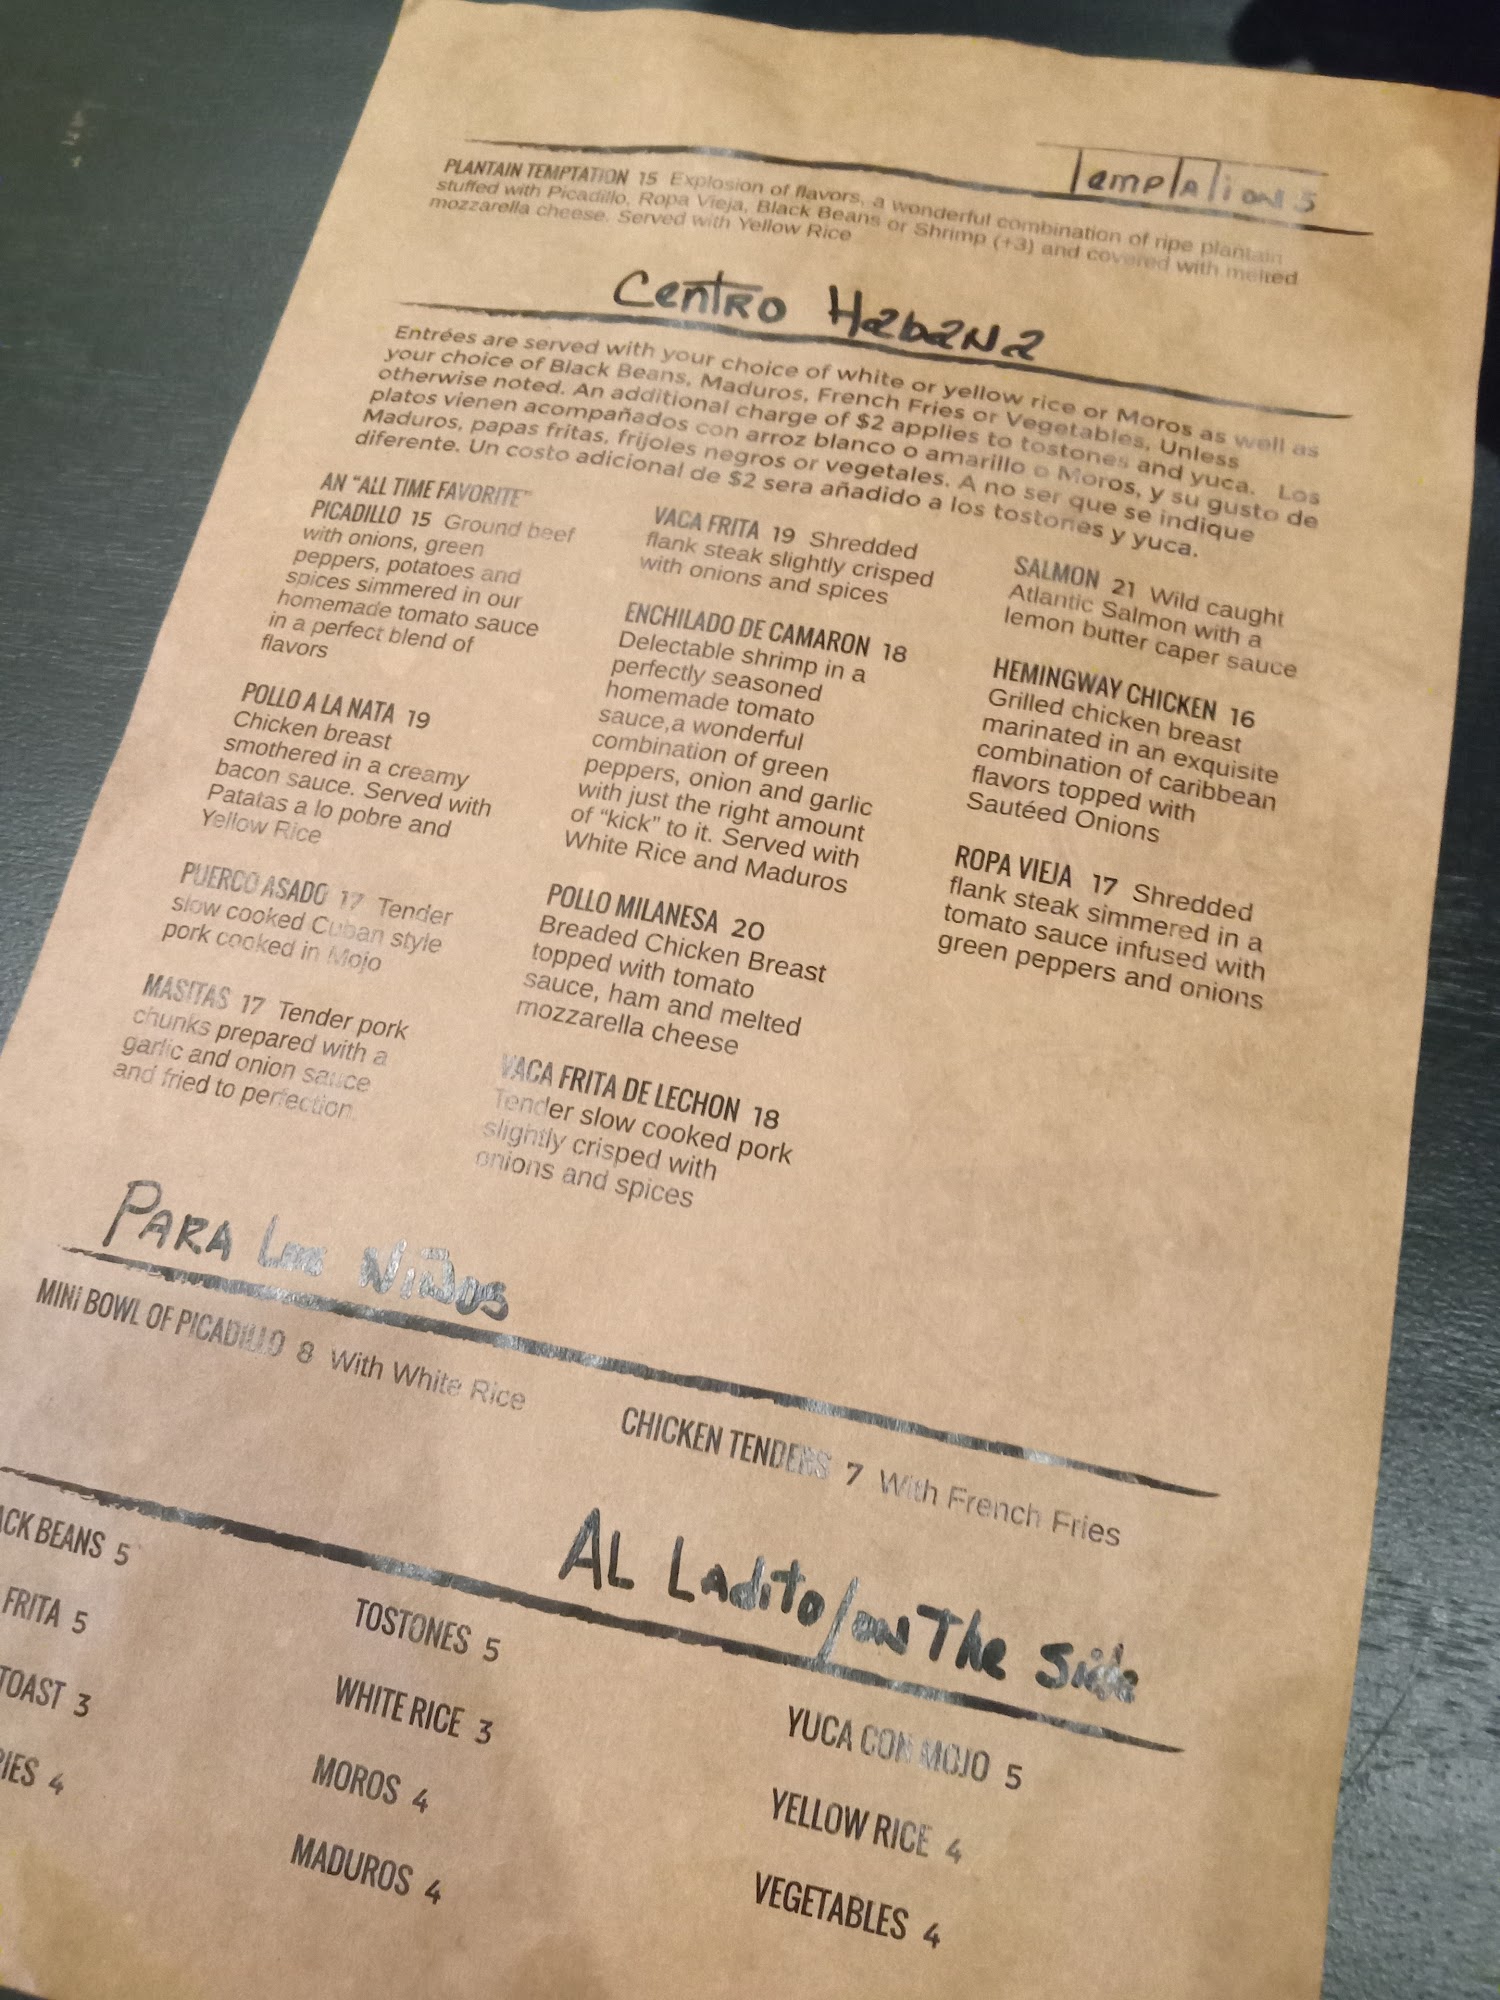 Temptations
PLANTAIN TEMPTATION 15 Explosion of flavors, a wonderful combination of ripe plantain
stuffed with Picadillo, Ropa Vieja, Black Beans or Shrimp (+3) and covered with melted
mozzarella cheese. Served with Yellow Rice
Centro Habana
Entrées are served with your choice of white or yellow rice or Moros as well as
your choice of Black Beans, Maduros, French Fries or Vegetables, Unless
otherwise noted. An additional charge of $2 applies to tostones and yuca. Los
platos vienen acompañados con arroz blanco o amarillo o Moros, y su gusto de
Maduros, papas fritas, frijoles negros or vegetales. A no ser que se indique
diferente. Un costo adicional de $2 sera añadido a los tostones y yuca.
AN "ALL TIME FAVORITE"
PICADILLO 15 Ground beef
with onions, green
peppers, potatoes and
spices simmered in our
homemade tomato sauce
in a perfect blend of
flavors
POLLO A LA NATA 19
Chicken breast
smothered in a creamy
bacon sauce. Served with
Patatas a lo pobre and
Yellow Rice
PUERCO ASADO 17 Tender
slow cooked Cuban style
pork cooked in Mojo
MASITAS 17 Tender pork
chunks prepared with a
garlic and onion sauce
and fried to perfection.
VACA FRITA 19 Shredded
flank steak slightly crisped
with onions and spices
ENCHILADO DE CAMARON 18
Delectable shrimp in a
perfectly seasoned
homemade tomato
sauce,a wonderful
combination of green
peppers, onion and garlic
with just the right amount
of "kick" to it. Served with
White Rice and Maduros
POLLO MILANESA 20
Breaded Chicken Breast
topped with tomato
sauce, ham and melted
mozzarella cheese
VACA FRITA DE LECHON 18
Tender slow cooked pork
slightly crisped with
onions and spices
SALMON 21 Wild caught
Atlantic Salmon with a
lemon butter caper sauce
HEMINGWAY CHICKEN 16
Grilled chicken breast
marinated in an exquisite
combination of caribbean
flavors topped with
Sautéed Onions
ROPA VIEJA 17 Shredded
flank steak simmered in a
tomato sauce infused with
green peppers and onions
PARA Los Niños
MINI BOWL OF PICADILLO 8 With White Rice
CHICKEN TENDERS 7 With French Fries
AL Ladito/on The Side
ACK BEANS 5
FRITA 5
TOAST 3
RIES 4
TOSTONES 5
WHITE RICE 3
MOROS 4
MADUROS 4
YUCA CON MOJO 5
YELLOW RICE 4
VEGETABLES 4